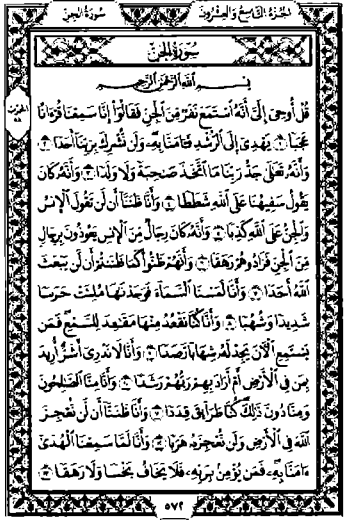 الجزء التاسع والعشرون سورة الجن
سورة الجن
بسم الله الرحمن الرحيم
قُلْ أُوحِىَ إِلَىَّ أَنَّهُ ٱسْتَمَعَ نَفَرٌ مِّنَ ٱلْجِنِّ فَقَالُوٓا۟ إِنَّا سَمِعْنَا قُرْءَانًا
عَجَبًا ١ يَهْدِىٓ إِلَى ٱلرُّشْدِ فَـَٔامَنَّا بِهِۦ وَلَن نُّشْرِكَ بِرَبِّنَآ أَحَدًا ٢
وَأَنَّهُۥ تَعَٰلَىٰ جَدُّ رَبِّنَا مَا ٱتَّخَذَ صَٰحِبَةً وَلَا وَلَدًا ٣ وَأَنَّهُۥ كَانَ
يَقُولُ سَفِيهُنَا عَلَى ٱللَّهِ شَطَطًا ٤ وَأَنَّا ظَنَنَّآ أَن لَّن تَقُولَ ٱلْإِنسُ
وَٱلْجِنُّ عَلَى ٱللَّهِ كَذِبًا ٥ وَأَنَّهُۥ كَانَ رِجَالٌ مِّنَ ٱلْإِنسِ يَعُوذُونَ بِرِجَالٍ
مِّنَ ٱلْجِنِّ فَزَادُوهُمْ رَهَقًا ٦ وَأَنَّهُمْ ظَنُّوا۟ كَمَا ظَنَنتُمْ أَن لَّن يَبْعَثَ
ٱللَّهُ أَحَدًا ٧ وَأَنَّا لَمَسْنَا ٱلسَّمَآءَ فَوَجَدْنَٰهَا مُلِئَتْ حَرَسًا
شَدِيدًا وَشُهُبًا ٨ وَأَنَّا كُنَّا نَقْعُدُ مِنْهَا مَقَٰعِدَ لِلسَّمْعِ فَمَن
يَسْتَمِعِ ٱلْـَٔانَ يَجِدْ لَهُۥ شِهَابًا رَّصَدًا ٩ وَأَنَّا لَا نَدْرِىٓ أَشَرٌّ أُرِيدَ
بِمَن فِى ٱلْأَرْضِ أَمْ أَرَادَ بِهِمْ رَبُّهُمْ رَشَدًا ١٠ وَأَنَّا مِنَّا ٱلصَّٰلِحُونَ
وَمِنَّا دُونَ ذَٰلِكَ كُنَّا طَرَآئِقَ قِدَدًا ١١ وَأَنَّا ظَنَنَّآ أَن لَّن نُّعْجِزَ
ٱللَّهَ فِى ٱلْأَرْضِ وَلَن نُّعْجِزَهُۥ هَرَبًا ١٢ وَأَنَّا لَمَّا سَمِعْنَا ٱلْهُدَىٰٓ
ءَامَنَّا بِهِۦ فَمَن يُؤْمِنۢ بِرَبِّهِۦ فَلَا يَخَافُ بَخْسًا وَلَا رَهَقًا ١٣
٥٧٢